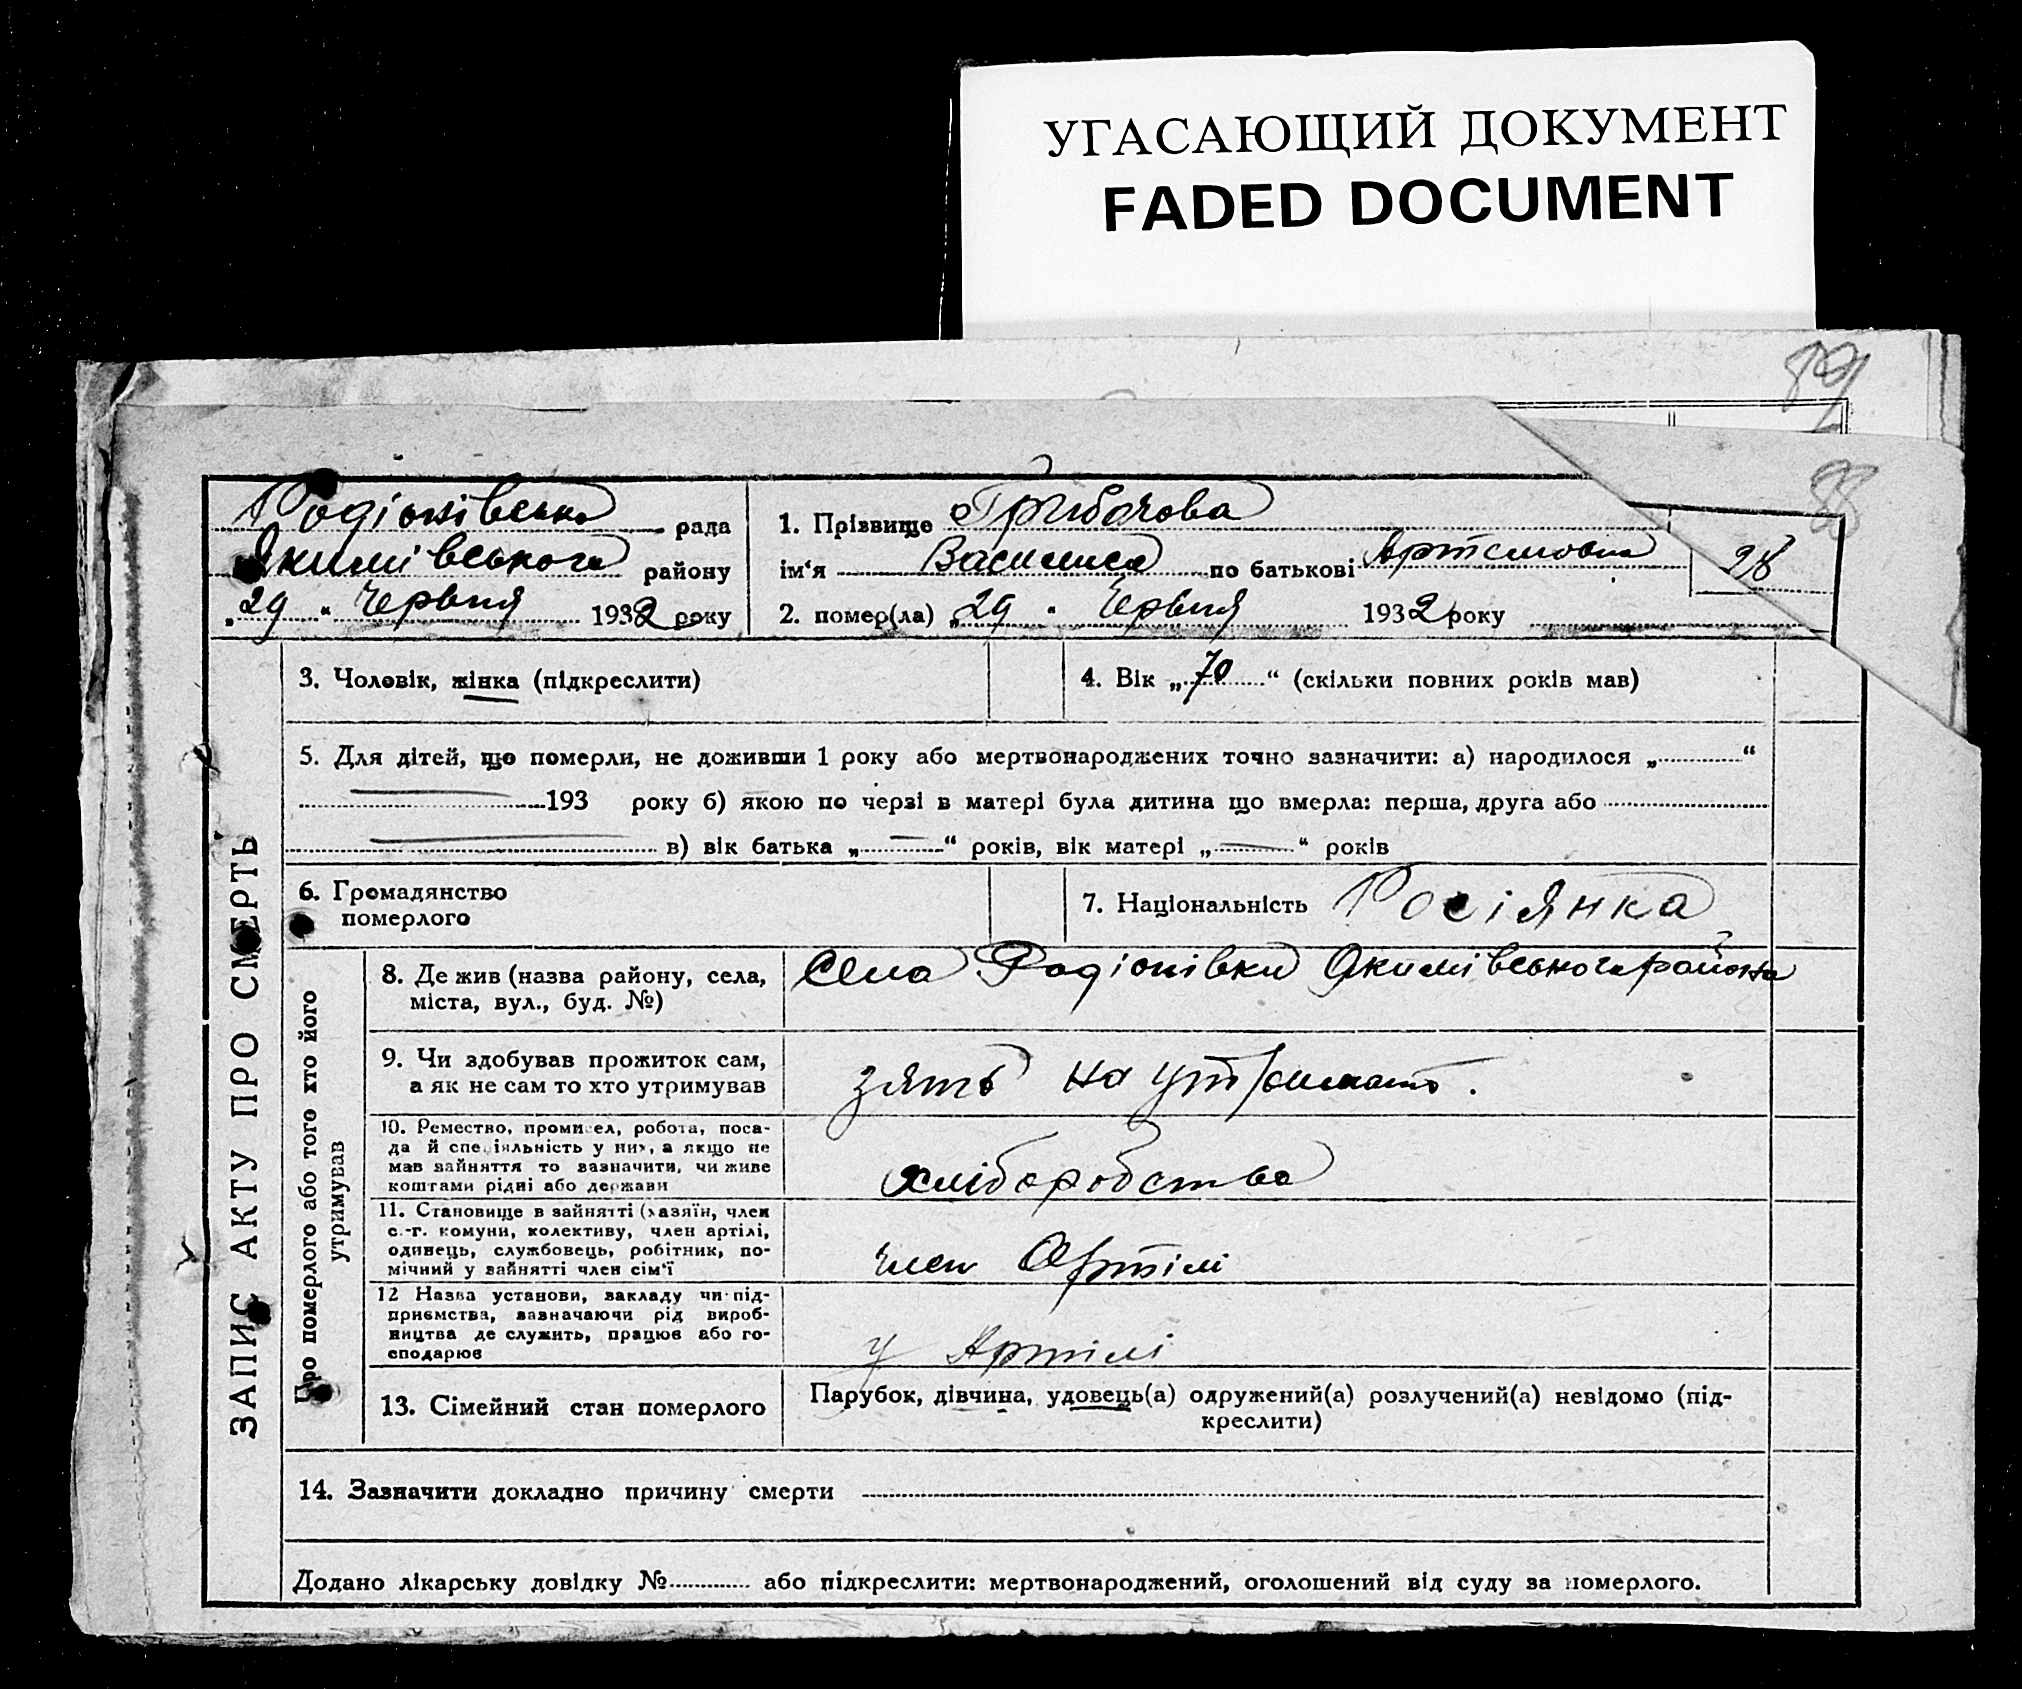 УГАСАЮЩИЙ ДОКУМЕНТ
FADED DOCUMENT
89
88
Родіонівська рада
Якимівського району
„29“ Червня 1932 року
1. Прізвище Грибачова
ім‘я Василиса по батькові Артемовна
28
2. помер(ла) „29“ Червня 1932 року
ЗАПИС АКТУ ПРО СМЕРТЬ
3. Чоловік, жінка (підкреслити)
4. Вік „70“ (скільки повних років мав)
5. Для дітей, що померли, не доживши 1 року або мертвонароджених точно зазначити: а) народилося „ “
193 року б) якою по черзі в матері була дитина що вмерла: перша, друга або
в) вік батька „ “ років, вік матері „ “ років
6. Громадянство
померлого
7. Національність Росіянка
Про померлого або того хто його
утримував
8. Де жив (назва району, села,
міста, вул., буд. №)
Села Радіонівки Якимівського района
9. Чи здобував прожиток сам,
а як не сам то хто утримував
зять на
10. Ремество, промисел, робота, поса-
да й спеціяльність у них, а якщо не
мав зайняття то зазначити, чи живе
коштами рідні або держави
хліборобства
11. Становище в зайнятті (хазяїн, член
с.-г. комуни, колективу, член артілі,
одинець, службовець, робітник, по-
мічний у зайнятті член сім'ї
член Артілі
12 Назва установи, закладу чи під-
приємства, зазначаючи рід вироб-
ництва де служить, працює або го-
сподарює
у Артілі
13. Сімейний стан померлого
Парубок, дівчина, удовець(а) одружений(а) розлучений(а) невідомо (під-
креслити)
14. Зазначити докладно причину смерти
Додано лікарську довідку № або підкреслити: мертвонароджений, оголошений від суду за померлого.